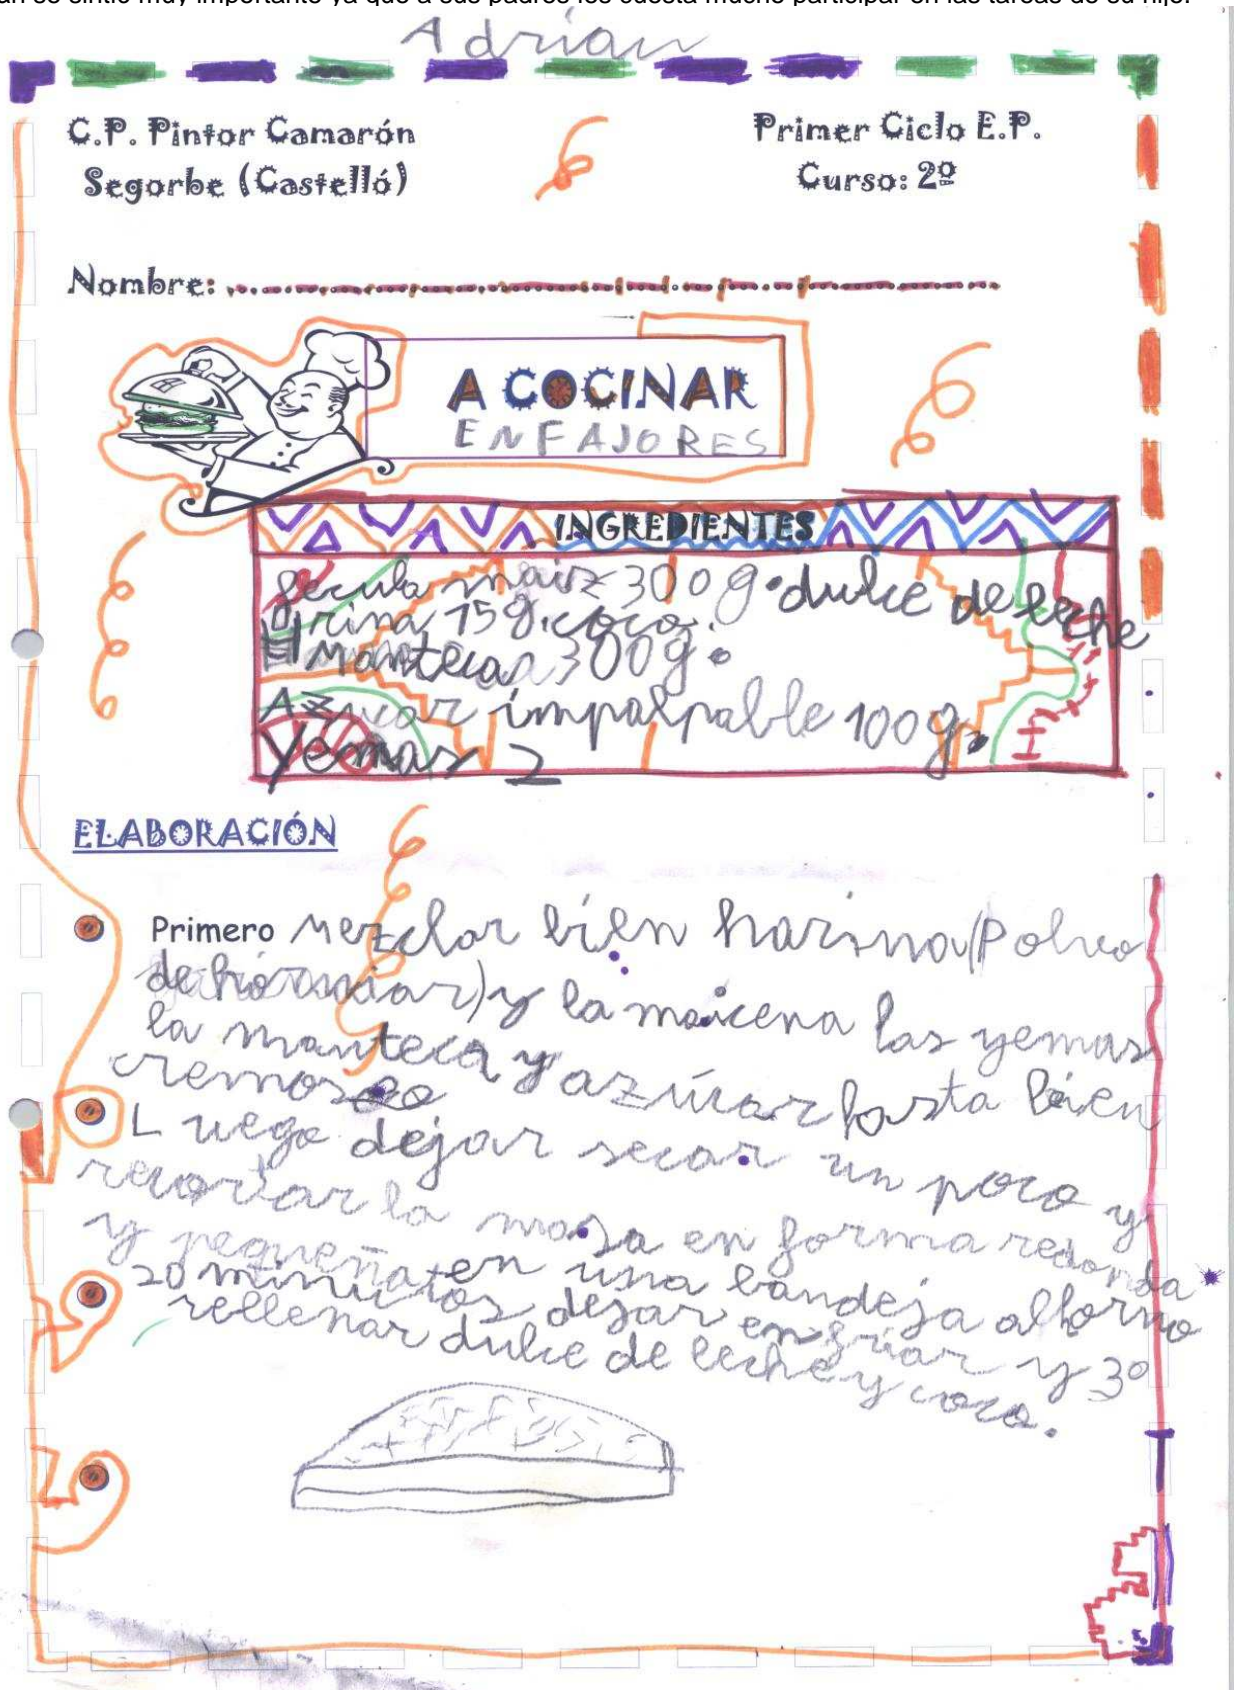 an se sintió muy importante ya que a sus padres les cuesta mucho participar en las tareas de su hijo.
Adrian
C.P. Pintor Camarón
Segorbe (Castelló)
Primer Ciclo E.P.
Curso: 2º
Nombre:
A COCINAR
ENFAJORES
INGREDIENTES
fecula maiz 300g. dulce de leche
Hrina 15g. coco.
Mantecas 300g.
Azucar impalpable 100g.
Yemas 2
ELABORACIÓN
Primero Mezclar bien harina (Polvo
de horniar) y la maicena las yemas
la manteca y azúcar hasta bien
cremoso
Luego dejar secar un poco y
recortar la masa en forma redonda
y pequeña en una bandeja al horno
20 minutos dejar enfriar y 3º
rellenar dulce de leche y coco.